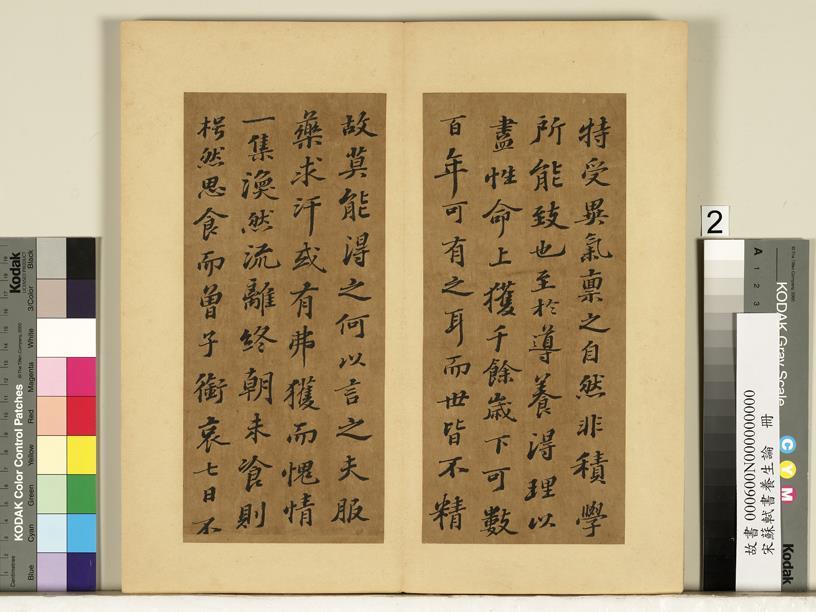 特受異氣禀之自然非積學
所能致也至於導養得理以
盡性命上獲千餘歲下可數
百年可有之耳而世皆不精
故莫能得之何以言之夫服
藥求汗或有弗獲而愧情
一集渙然流離終朝未飡則
枵然思食而曾子銜哀七日不
Kodak
KODAK Color Control Patches
Blue
Cyan
Green
Yellow
Red
Magenta
White
3/Color
Black
2
A 1 2 3
KODAK Gray Scale
C Y M
Kodak
故書 000600N000000000
宋蘇軾書養生論 冊